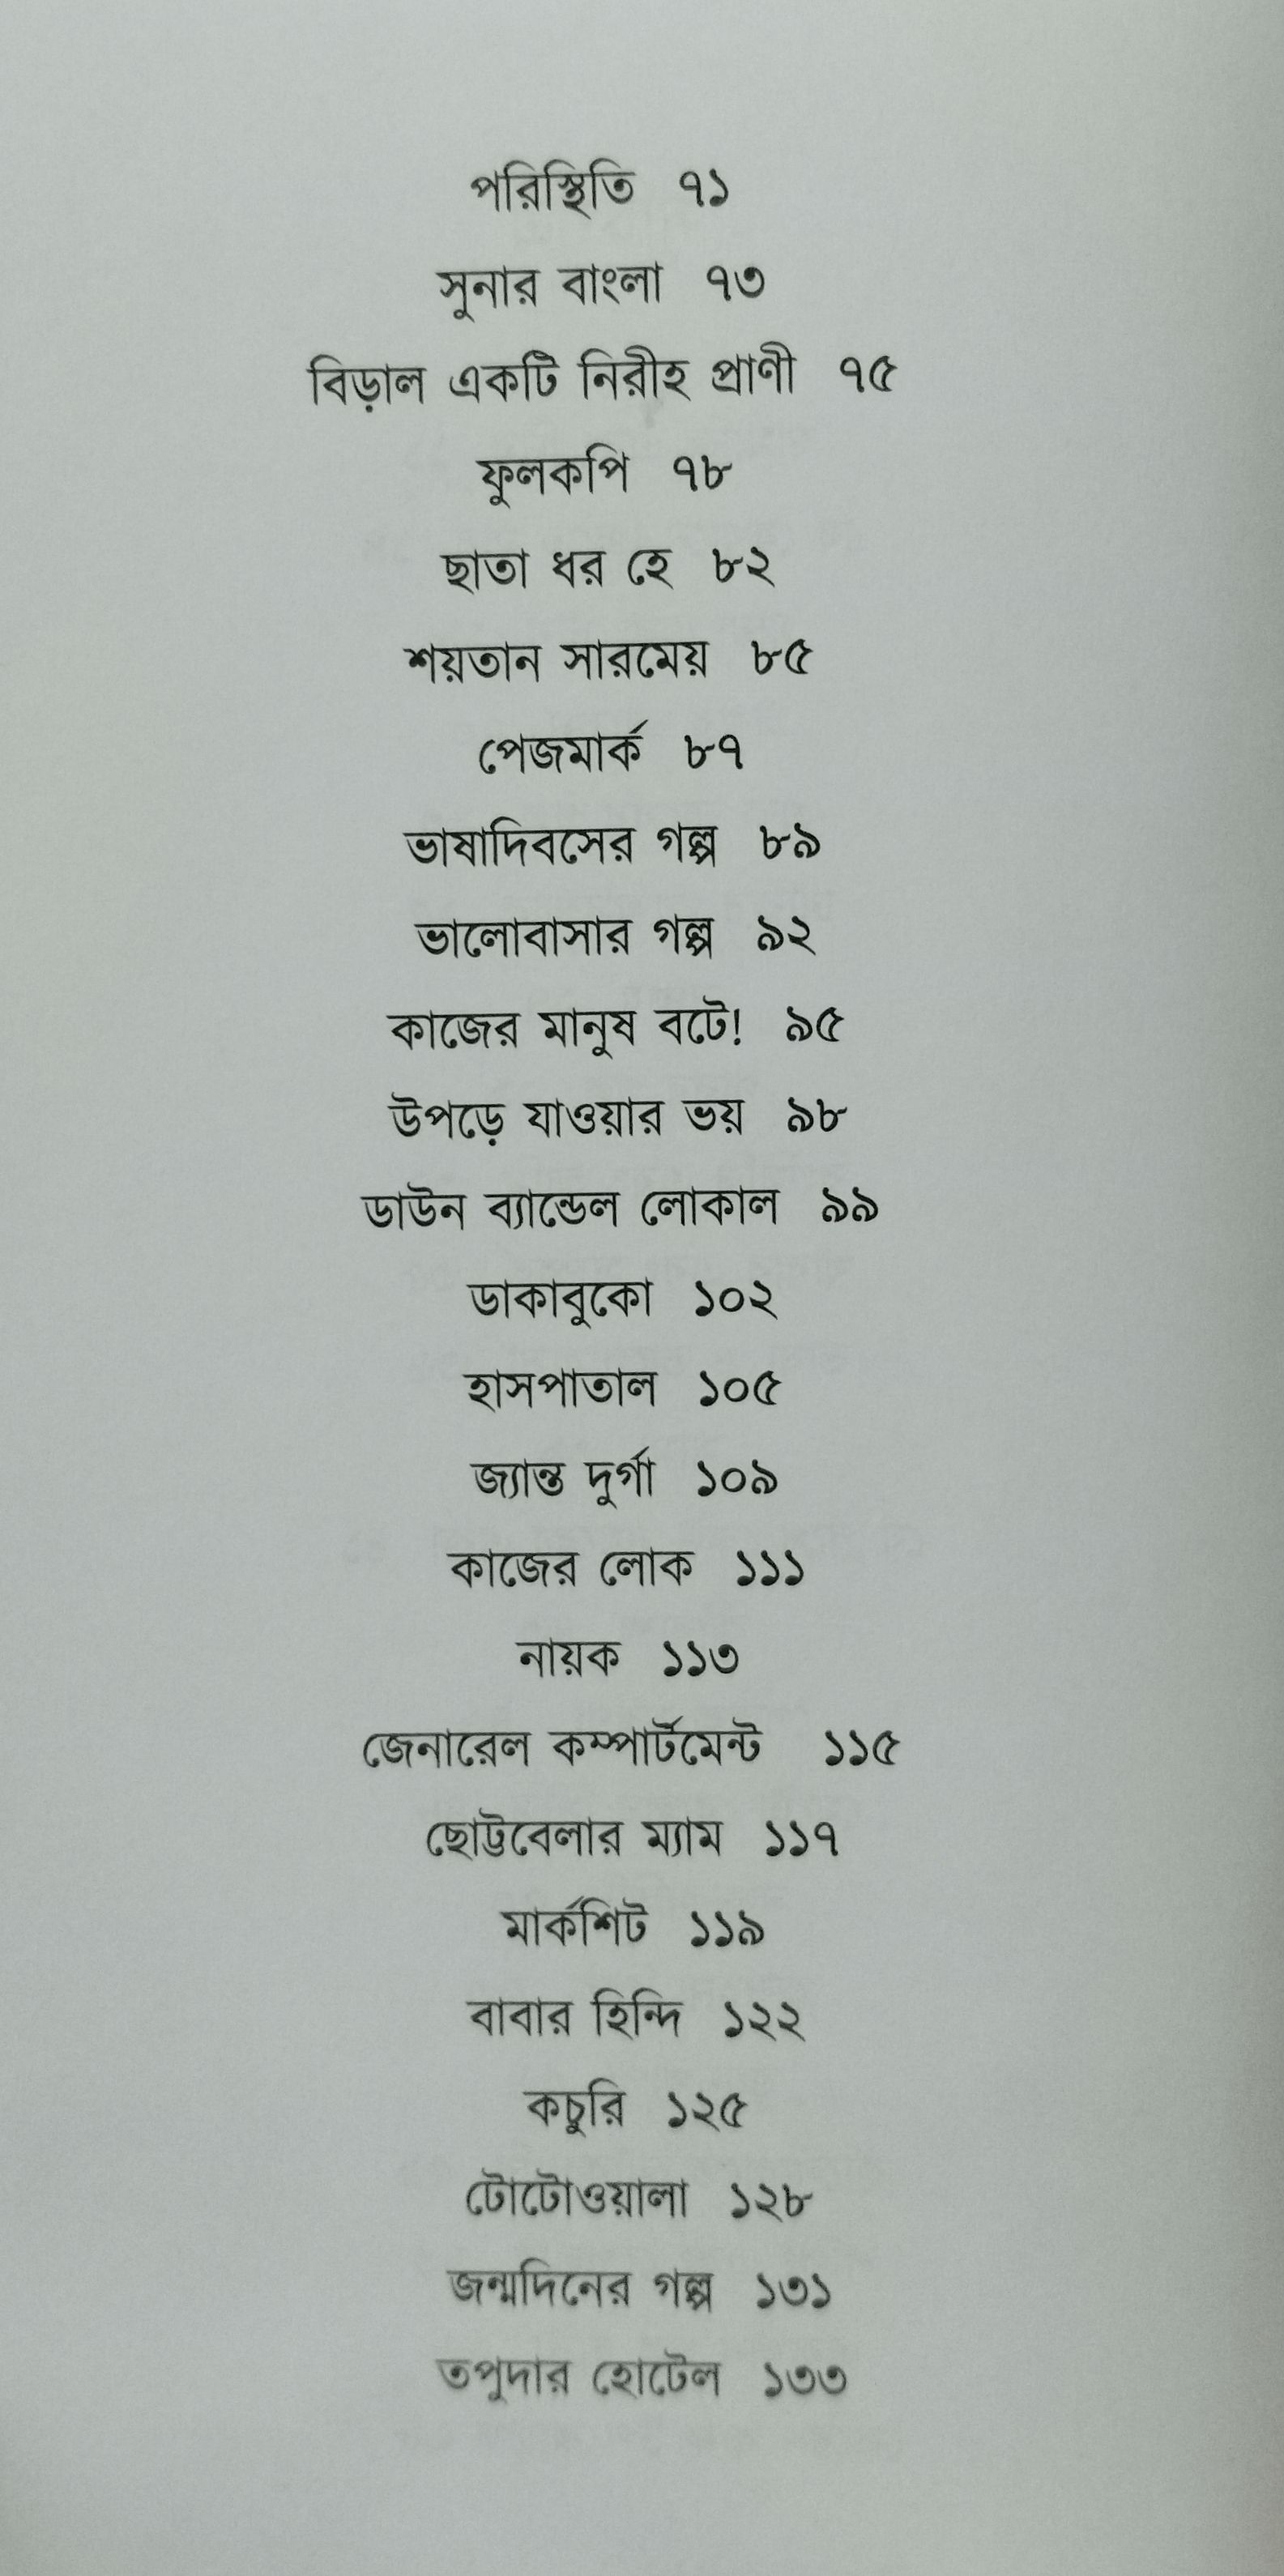 পরিস্থিতি ৭১
সুনার বাংলা ৭৩
বিড়াল একটি নিরীহ প্রাণী ৭৫
ফুলকপি ৭৮
ছাতা ধর হে ৮২
শয়তান সারমেয় ৮৫
পেজমার্ক ৮৭
ভাষাদিবসের গল্প ৮৯
ভালোবাসার গল্প ৯২
কাজের মানুষ বটে! ৯৫
উপড়ে যাওয়ার ভয় ৯৮
ডাউন ব্যান্ডেল লোকাল ৯৯
ডাকাবুকো ১০২
হাসপাতাল ১০৫
জ্যান্ত দুর্গা ১০৯
কাজের লোক ১১১
নায়ক ১১৩
জেনারেল কম্পার্টমেন্ট ১১৫
ছোট্টবেলার ম্যাম ১১৭
মার্কশিট ১১৯
বাবার হিন্দি ১২২
কচুরি ১২৫
টোটোওয়ালা ১২৮
জন্মদিনের গল্প ১৩১
তপুদার হোটেল ১৩৩